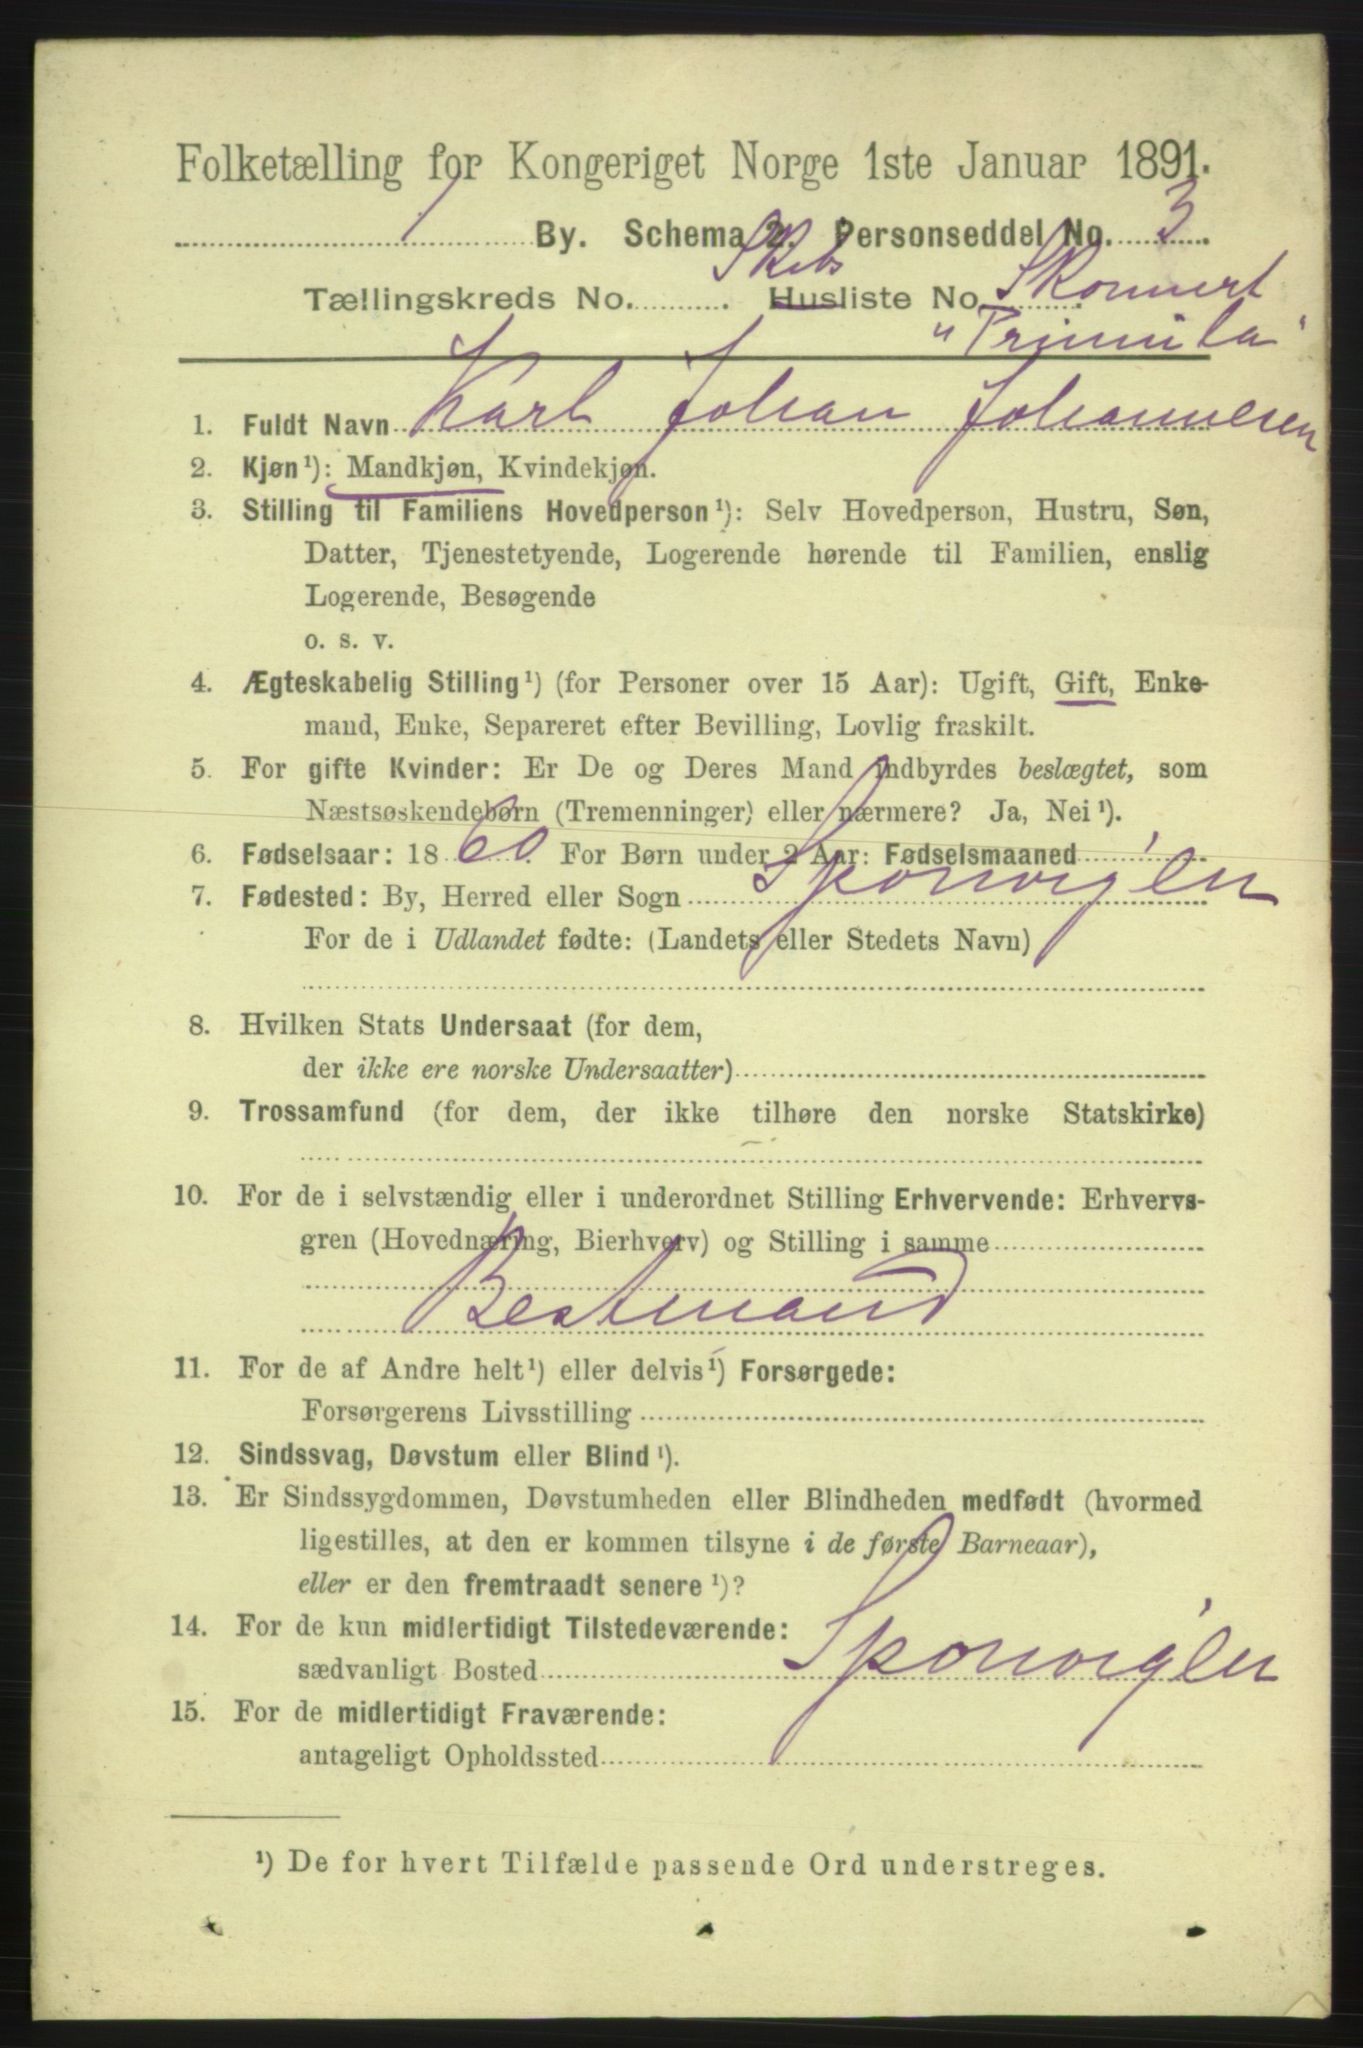 Folketælling for Kongeriget Norge 1ste Januar 1891.
By. Schema 2. Personseddel No. 3
Tællingskreds No. Husliste No. Skibs Skonnert
"Primula"
1. Fuldt Navn Karl Johan Johannesen
2. Kjøn ¹): Mandkjøn, Kvindekjøn.
3. Stilling til Familiens Hovedperson ¹): Selv Hovedperson, Hustru, Søn,
Datter, Tjenestetyende, Logerende hørende til Familien, enslig
Logerende, Besøgende
o. s. v.
4. Ægteskabelig Stilling ¹) (for Personer over 15 Aar): Ugift, Gift, Enke-
mand, Enke, Separeret efter Bevilling, Lovlig fraskilt.
5. For gifte Kvinder: Er De og Deres Mand indbyrdes beslægtet, som
Næstsøskendebørn (Tremenninger) eller nærmere? Ja, Nei ¹).
6. Fødselsaar: 1860. For Børn under 2 Aar: Fødselsmaaned
7. Fødested: By, Herred eller Sogn Sporvigen
For de i Udlandet fødte: (Landets eller Stedets Navn)
8. Hvilken Stats Undersaat (for dem,
der ikke ere norske Undersaatter)
9. Trossamfund (for dem, der ikke tilhøre den norske Statskirke)
10. For de i selvstændig eller i underordnet Stilling Erhvervende: Erhvervs-
gren (Hovednæring, Bierhverv) og Stilling i samme
Bestmand
11. For de af Andre helt ¹) eller delvis ¹) Forsørgede:
Forsørgerens Livsstilling
12. Sindssvag, Døvstum eller Blind ¹).
13. Er Sindssygdommen, Døvstumheden eller Blindheden medfødt (hvormed
ligestilles, at den er kommen tilsyne i de første Barneaar),
eller er den fremtraadt senere ¹)?
14. For de kun midlertidigt Tilstedeværende:
sædvanligt Bosted Sporvigen
15. For de midlertidigt Fraværende:
antageligt Opholdssted
¹) De for hvert Tilfælde passende Ord understreges.